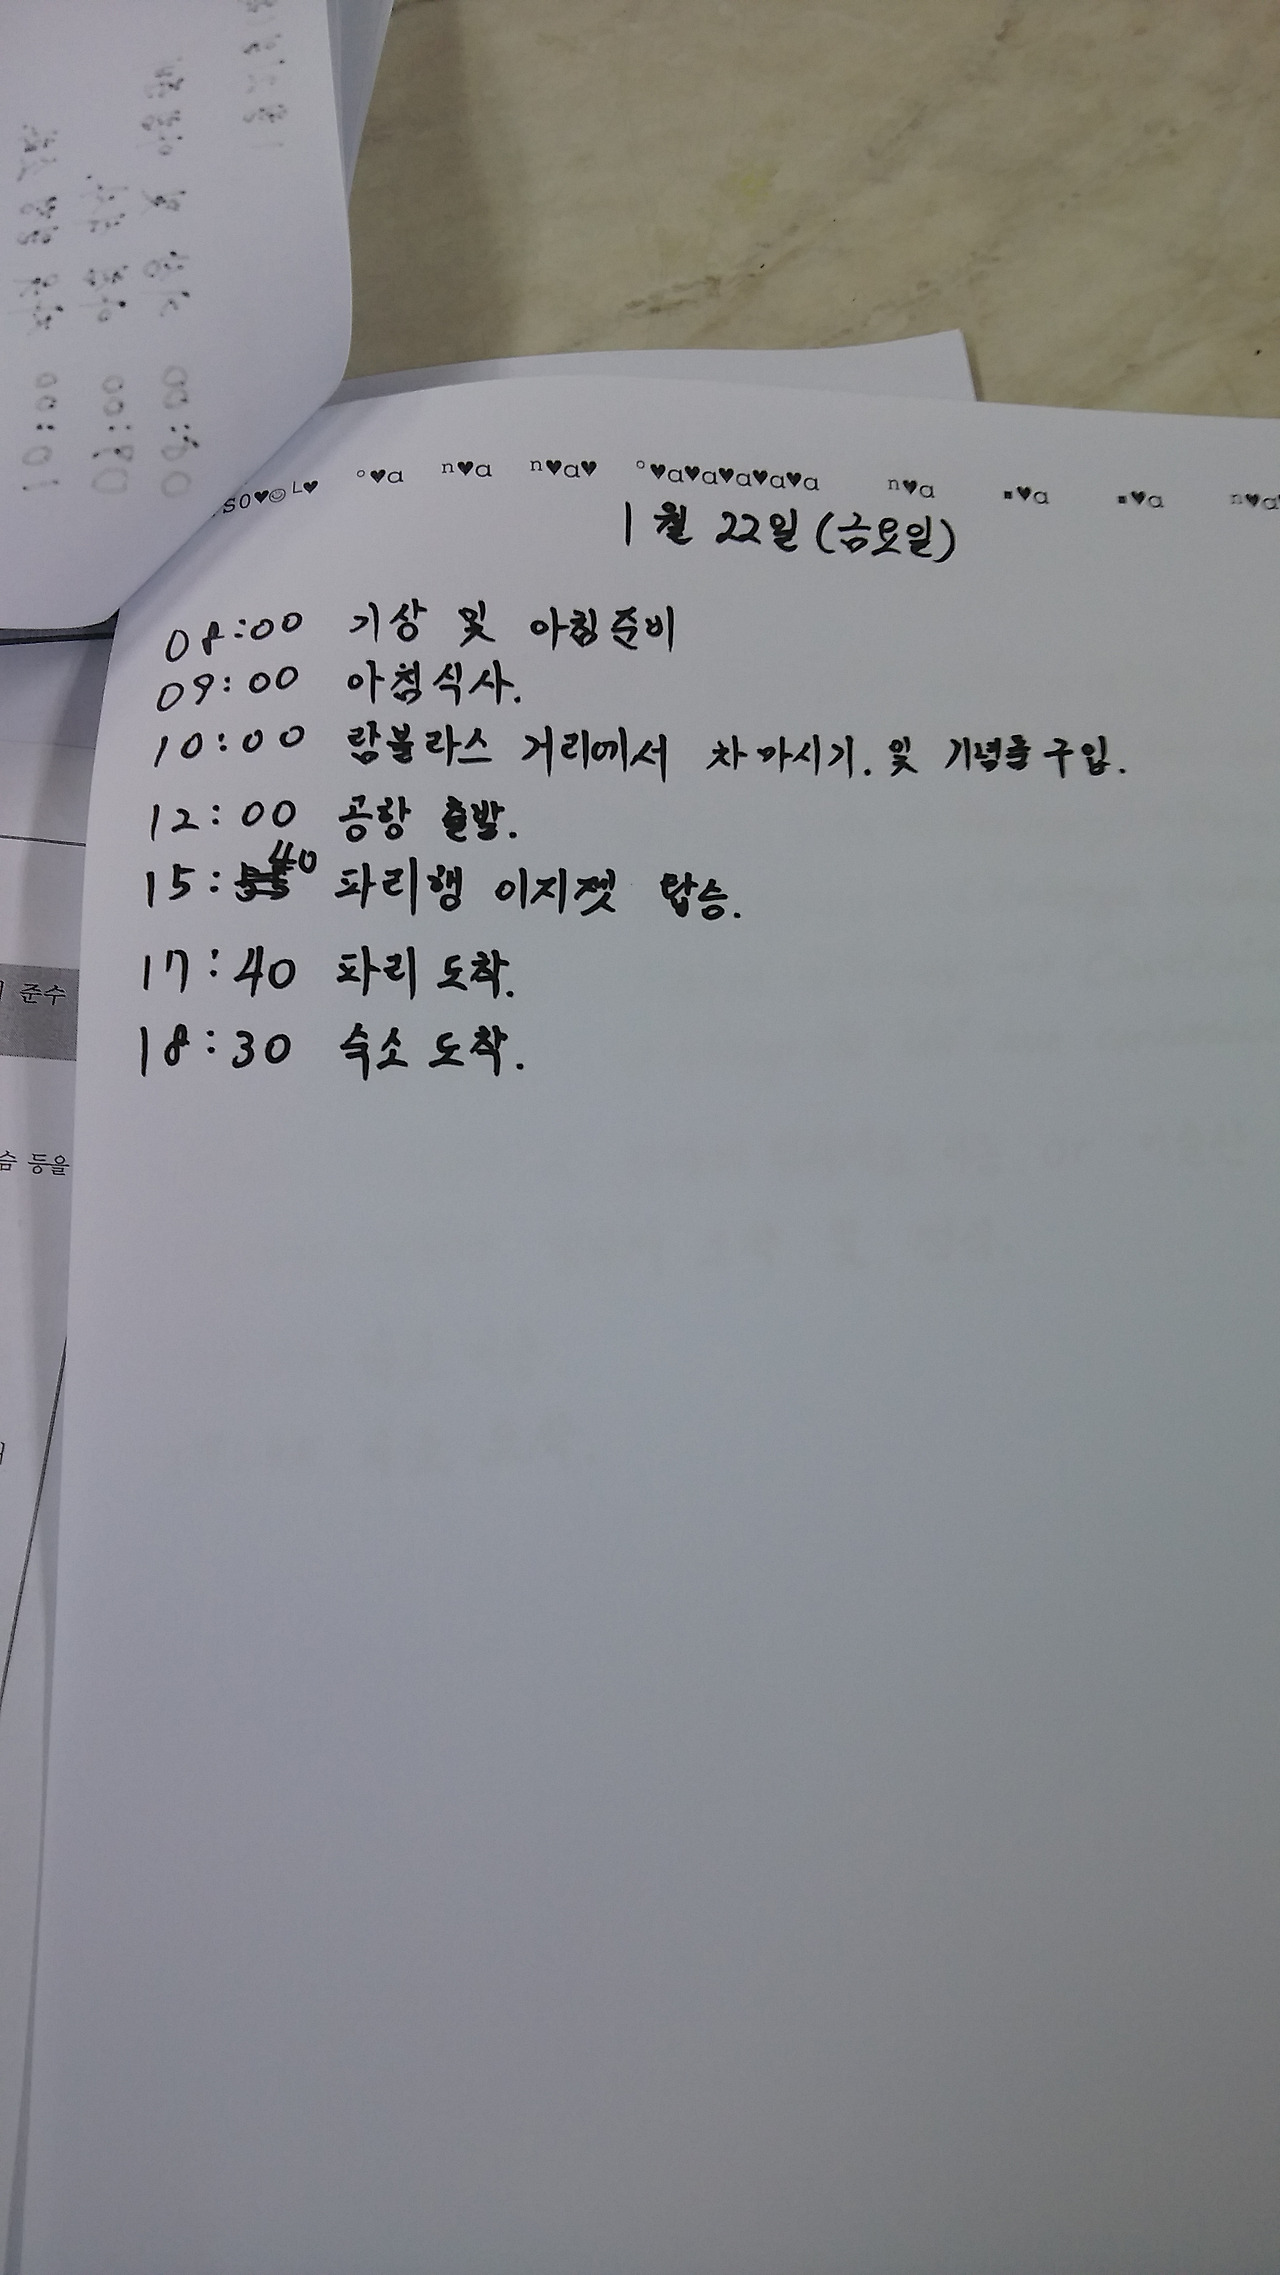 1월 22일 (금요일)
08:00 기상 및 아침준비
09:00 아침식사.
10:00 람블라스 거리에서 차 마시기. 및 기념품 구입.
12:00 공항 출발.
15:40 파리행 이지젯 탑승.
17:40 파리 도착.
18:30 숙소 도착.
준수
등을